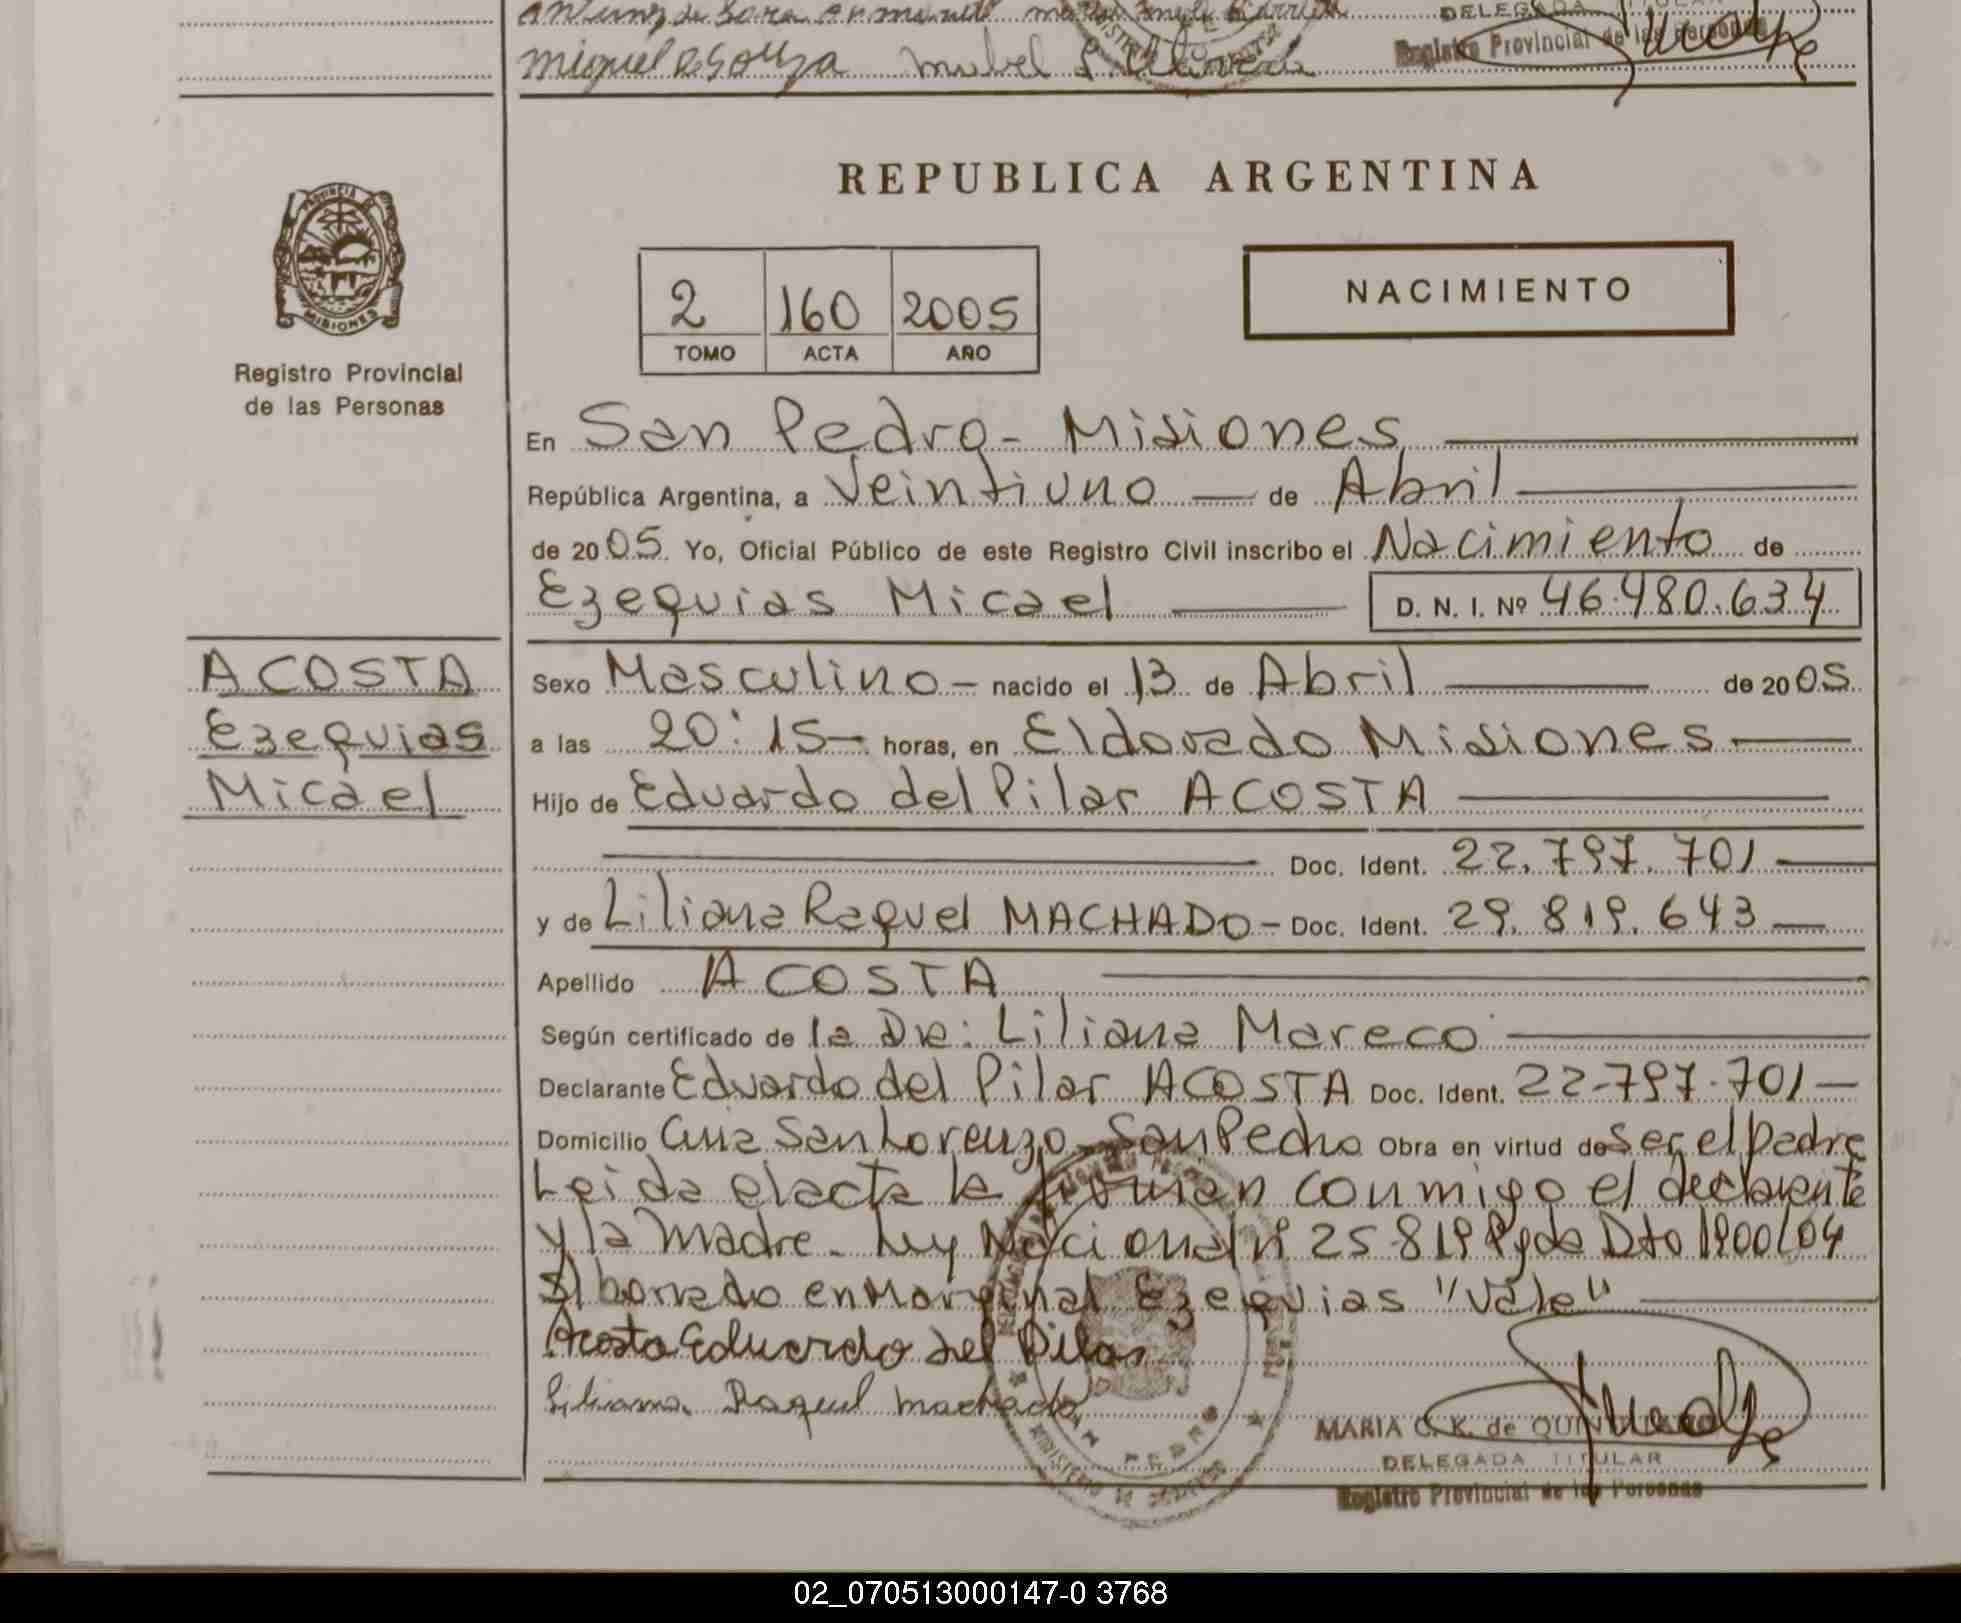 Miguel D Souza Mabel
DELEGADA TITULAR
Registro Provincial de las Personas
REPUBLICA ARGENTINA
PROVINCIA DE
MISIONES
Registro Provincial
de las Personas
2 160 2005
TOMO ACTA AÑO
NACIMIENTO
En San Pedro - Misiones
República Argentina, a Veintiuno de Abril
de 2005 Yo, Oficial Público de este Registro Civil inscribo el Nacimiento de
Ezequias Micael D. N. I. Nº 46.480.634
ACOSTA
Ezequias
Micael
Sexo Masculino - nacido el 13 de Abril de 2005
a las 20:15 - horas, en Eldorado Misiones
Hijo de Eduardo del Pilar ACOSTA
Doc. Ident. 22.797.701
y de Liliana Raquel MACHADO - Doc. Ident. 29.819.643
Apellido ACOSTA
Según certificado de la Dra: Liliana Mareco
Declarante Eduardo del Pilar ACOSTA Doc. Ident. 22-797.701
Domicilio San Lorenzo - San Pedro Obra en virtud de ser el padre
Leida el acta la firman conmigo el declarante
y la madre - Ley Nacional Nº 25.819 Dto 1900/04
El borrado en Marginal Ezequias "Vale"
Acosta Eduardo del Pilar
Liliana Raquel Machado
SAN PEDRO
MARIA C. K. de
DELEGADA TITULAR
Registro Provincial de las Personas
02_070513000147-0 3768